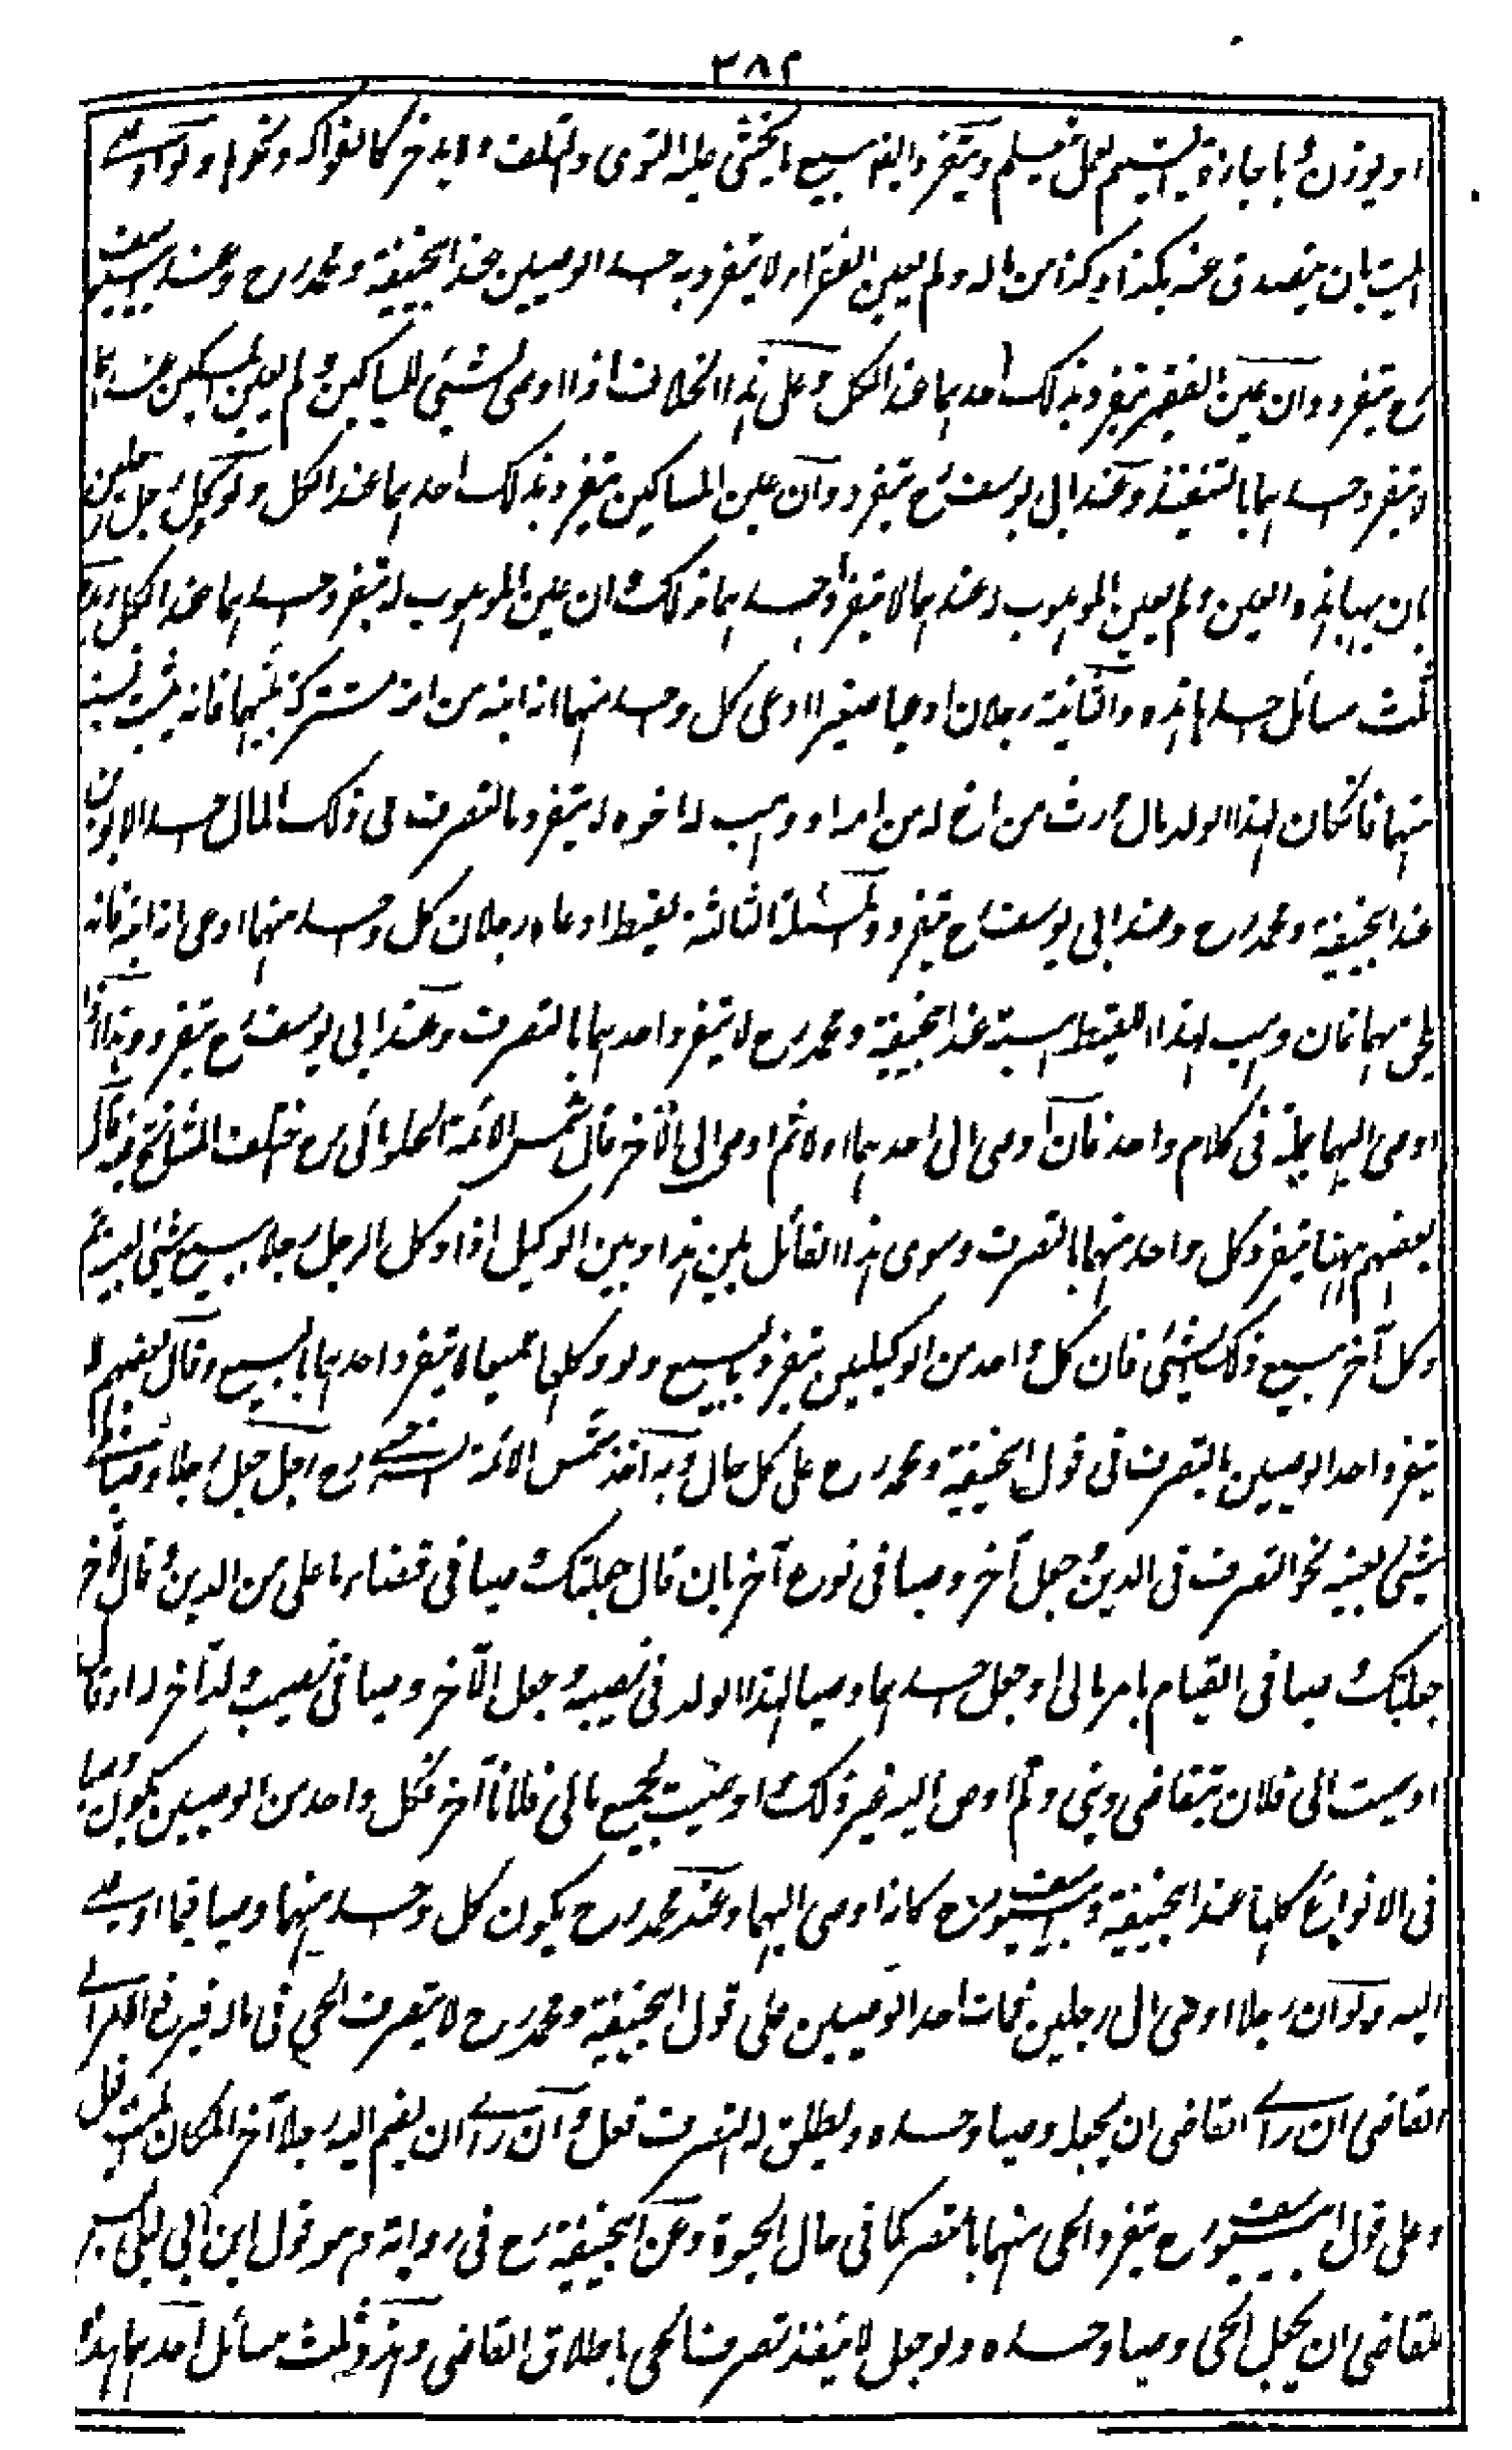 ٣٨٢
او يوزن وباجارة اليتيم لعمل تعليم وينفرد ايضا ببيع ما يخشى عليه التوى والتلف ولا يدخر كالفواكه ونحوها ولو اوصى
الميت بان يتصدق عنه بكذا وكذا من ماله ولم يعين الفقراء لا ينفرد به احد الوصيين عند ابيحنيفة ومحمد رح وعند ابيوسف
رح ينفرد وان عين الفقير ينفرد بذلك احدهما عند الكل وعلى هذا الخلاف اذا اوصى بشئ للمساكين ولم يعين المسكين عندهما
لا ينفرد احدهما بالتنفيذ وعند ابى يوسف رح ينفرد وان عين المساكين ينفرد بذلك احدهما عند الكل ولو وكل رجل رجلين
بان يهبا هذه العين ولم يعين الموهوب له عندهما لا ينفرد احدهما بذلك وان عين الموهوب له ينفرد احدهما عند الكل
ثلث مسائل احدها هذه والثانية رجلان ادعيا صغيرا ادعى كل واحد منهما انه ابنه من امة مشتركة بينهما فانه يثبت نسبه
منهما فان كان لهذا الولد مال ورث من اخ له من امه او وهب له اخوه لا ينفرد بالتصرف فى ذلك المال احد الابوين
عند ابيحنيفة ومحمد رح وعند ابى يوسف رح ينفرد والمسئلة الثالثة لقيط ادعاه رجلان كل واحد منهما ادعى انه ابنه فانه
يلحق بهما فان وهب لهذا اللقيط هبة عند ابيحنيفة ومحمد رح لا ينفرد احدهما بالتصرف وعند ابى يوسف رح ينفرد وهذا اذا
اوصى اليهما جملة فى كلام واحد فان اوصى الى احدهما اولا ثم اوصى الى الآخر قال شمس الائمة الحلوائى رح اختلف المشائخ فيه قال
بعضهم ههنا ينفرد كل واحد منهما بالتصرف وسوى هذا القائل بين هذا وبين الوكيل اذا وكل الرجل رجلا ببيع شئ بعينه ثم
وكل آخر ببيع ذلك الشئ فان كل واحد من الوكيلين ينفرد بالبيع ولو وكلهما جميعا لا ينفرد احدهما بالبيع وقال بعضهم لا
ينفرد احد الوصيين بالتصرف فى قول ابيحنيفة ومحمد رح على كل حال وبه اخذ شمس الائمة السرخسى رح رجل جعل رجلا وصيا فى
شئ بعينه نحو التصرف فى الدين وجعل آخر وصيا فى نوع آخر بان قال جعلتك وصيا فى قضاء ما على من الدين وقال لآخر
جعلتك وصيا فى القيام بامر مالى او جعل احدهما وصيا لهذا الولد فى نصيبه وجعل الآخر وصيا فى نصيب ولد آخر له او قال
اوصيت الى فلان بتقاضى دينى ولم اوص اليه غير ذلك واوصيت بجميع مالى فلانا آخر فكل واحد من الوصيين يكون وصيا
فى الانواع كلها عند ابيحنيفة وابيوسف رح كانه اوصى اليهما وعند محمد رح يكون كل واحد منهما وصيا فيما اوصى
اليه ولو ان رجلا اوصى الى رجلين فمات احد الوصيين على قول ابيحنيفة ومحمد رح لا يتصرف الحى فى ماله فيرفع الامر الى
القاضى ان رأى القاضى ان يجعله وصيا وحده ويطلق له التصرف فعل وان رأى ان يضم اليه رجلا آخر مكان الميت فعل
وعلى قول ابيوسف رح ينفرد الحى منهما بالتصرف كما فى حال الحيوة وعن ابيحنيفة رح فى رواية وهو قول ابن ابى ليلى ليس
للقاضى ان يجعل الحى وصيا وحده ولو جعل لا ينفذ تصرف الحى باطلاق القاضى وهذه ثلث مسائل احدها هذه